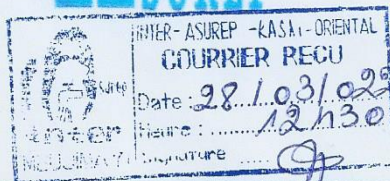 INTER-ASUREP-KASAI-ORIENTAL
COURRIER RECU
Date : 28/03/022
Heure : 12h30
Signature